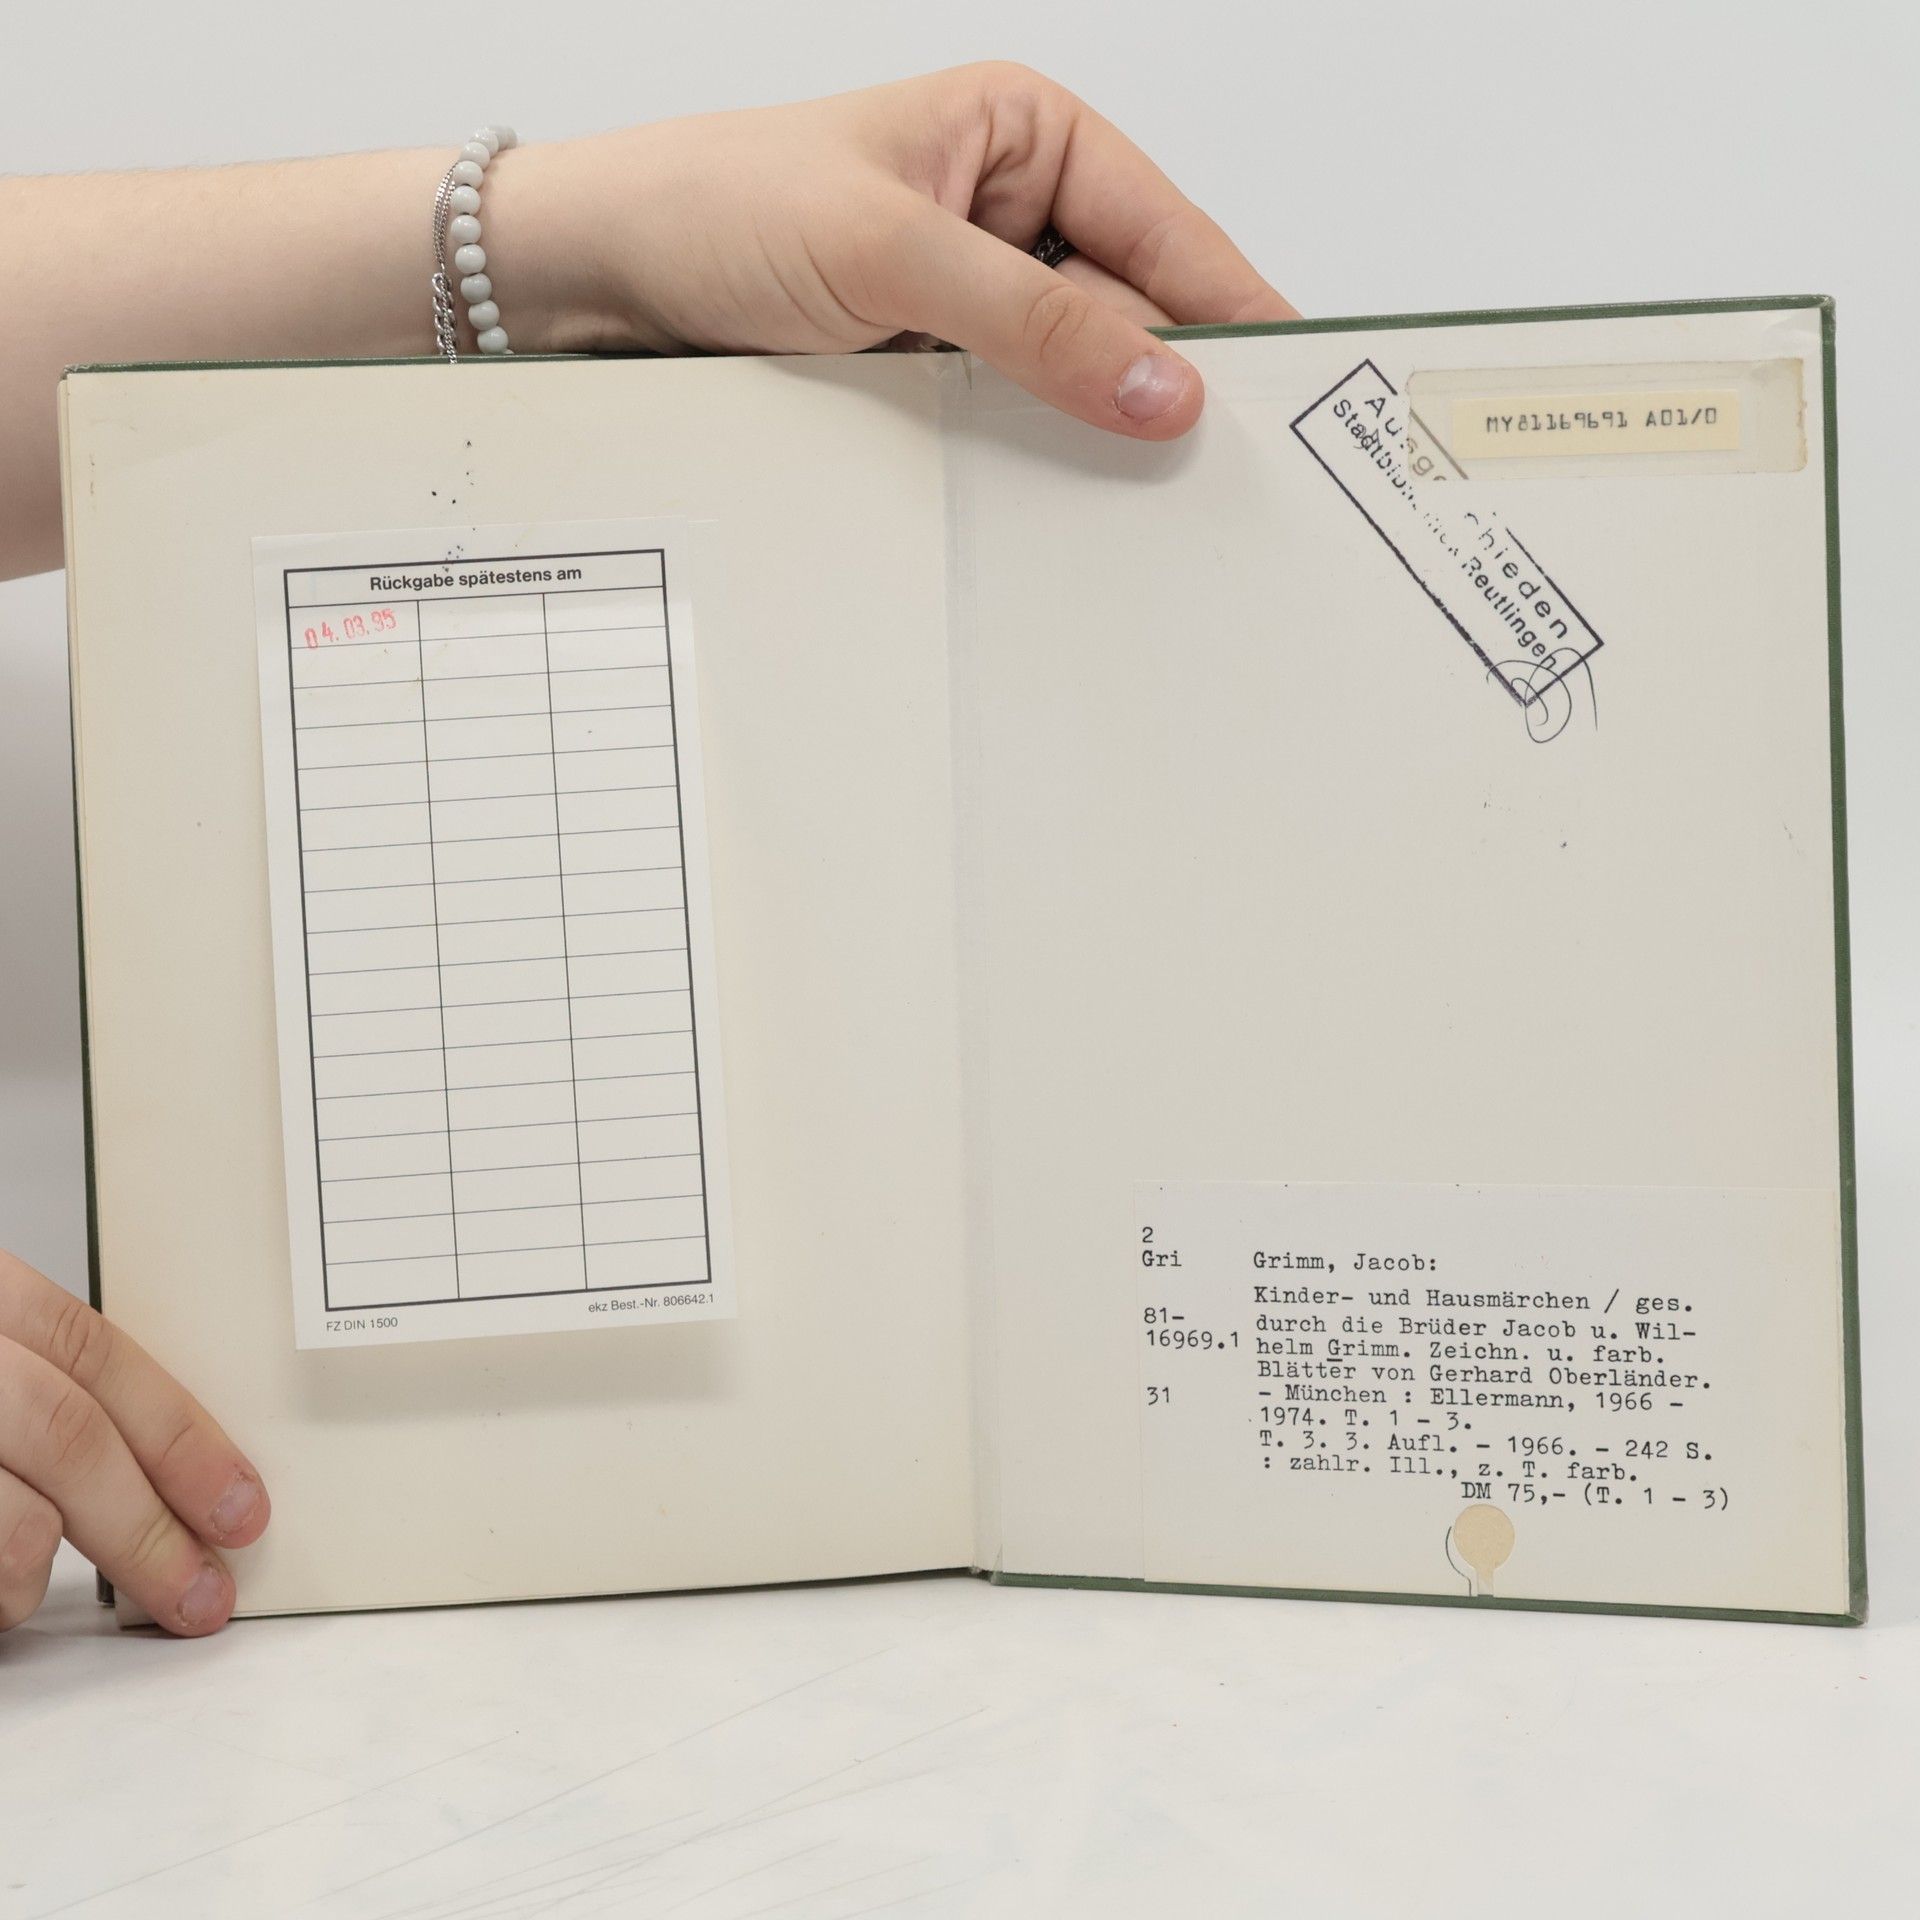 Rückgabe spätestens am
04.03.95
FZ DIN 1500
ekz Best.-Nr. 806642.1
MY81169691 A01/0
Reutlingen
2
Gri
Grimm, Jacob:
Kinder- und Hausmärchen / ges.
81-
durch die Brüder Jacob u. Wil-
16969.1
helm Grimm. Zeichn. u. farb.
Blätter von Gerhard Oberländer.
31
- München : Ellermann, 1966 -
1974. T. 1 - 3.
T. 3. 3. Aufl. - 1966. - 242 S.
: zahlr. Ill., z. T. farb.
DM 75,- (T. 1 - 3)